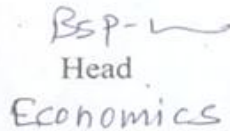 Head
Economics